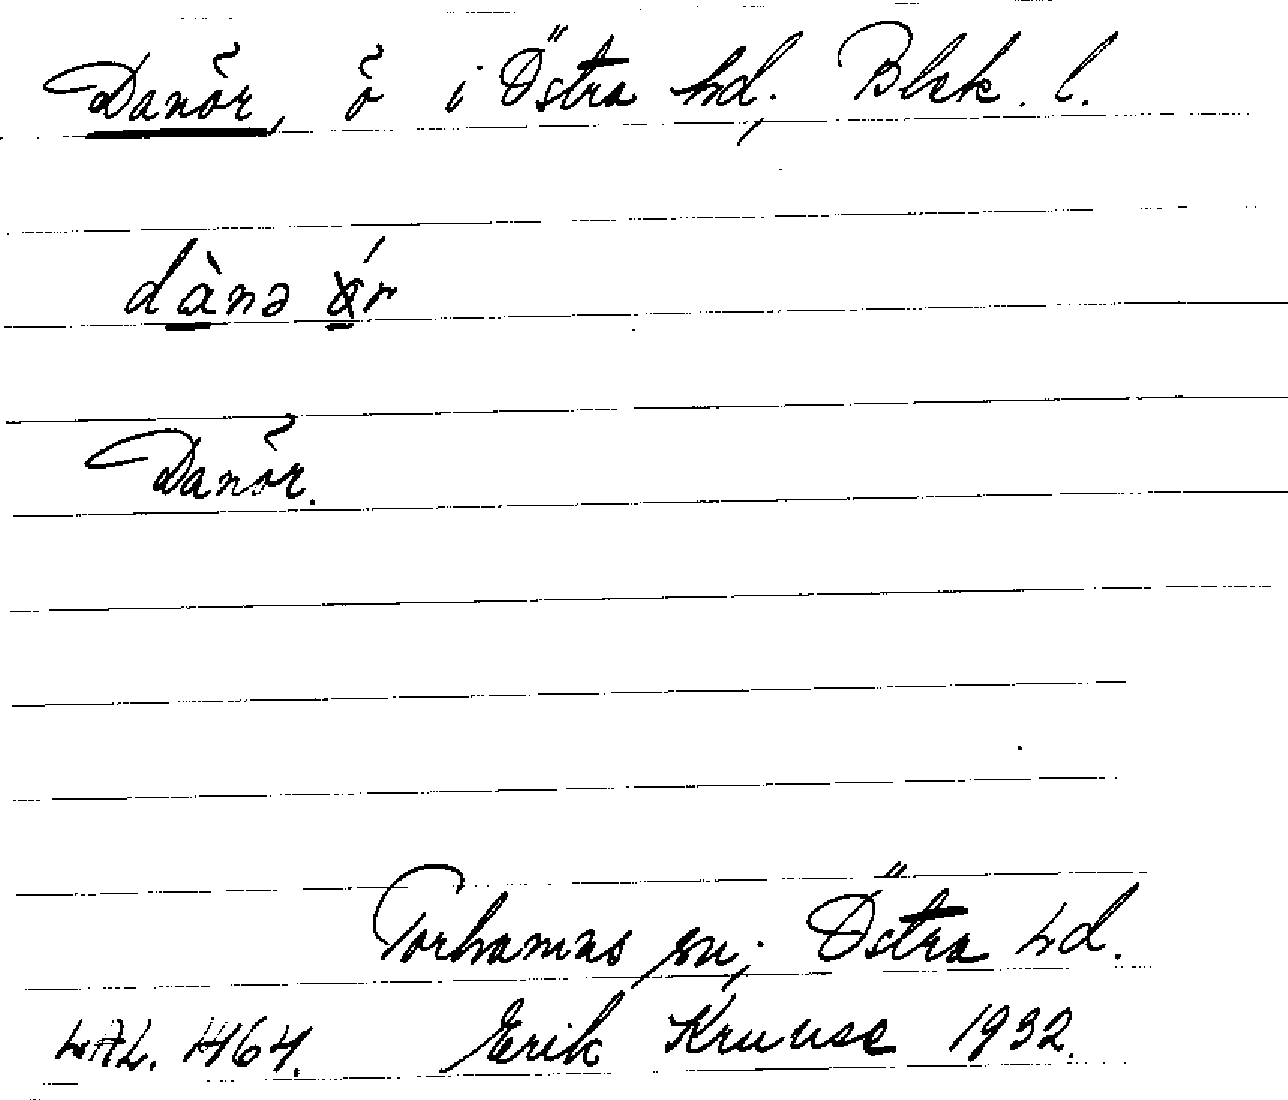 Danör, ö i Östra hd, Blek. l.
dànə ǿr
Danör.
Torhamns sn; Östra hd.
LAL. Erik Kruuse 1932.